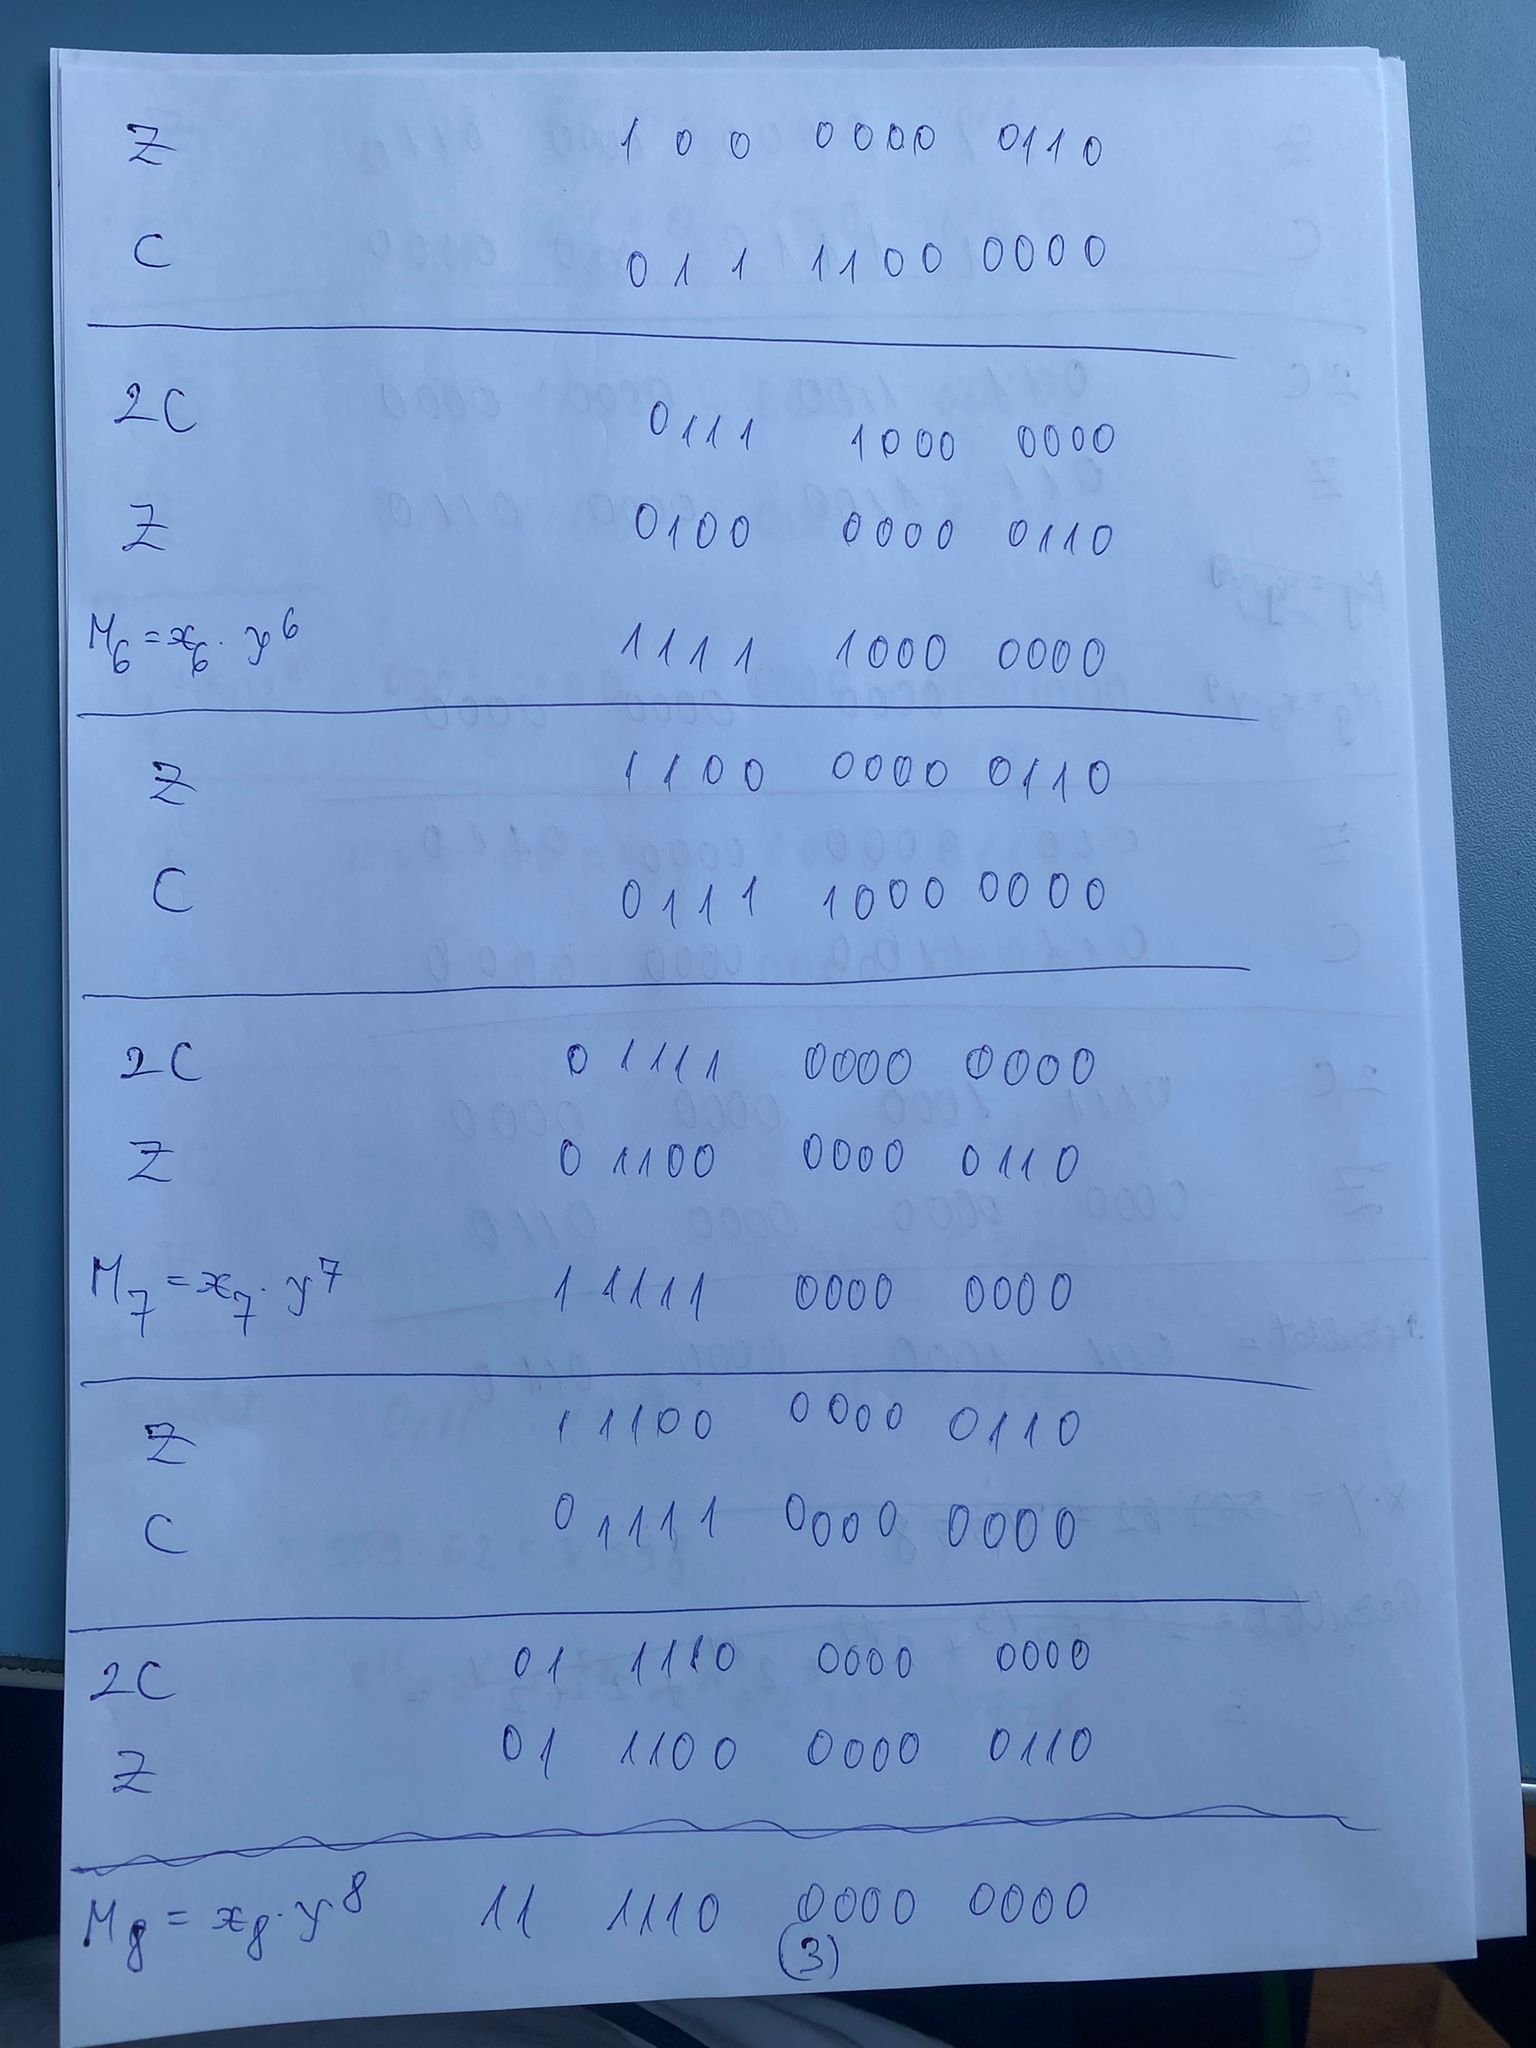 Z 1 0 0 0000 0110
C 0 1 1 1100 0000
2C 0111 1000 0000
Z 0100 0000 0110
M₆ = x₆ · y⁶ 1111 1000 0000
Z 1100 0000 0110
C 0111 1000 0000
2C 0 1111 0000 0000
Z 0 1100 0000 0110
M₇ = x₇ · y⁷ 1 1111 0000 0000
Z 1 1100 0000 0110
C 0 1111 0000 0000
2C 01 1110 0000 0000
Z 01 1100 0000 0110
M₈ = x₈ · y⁸ 11 1110 0000 0000
(3)